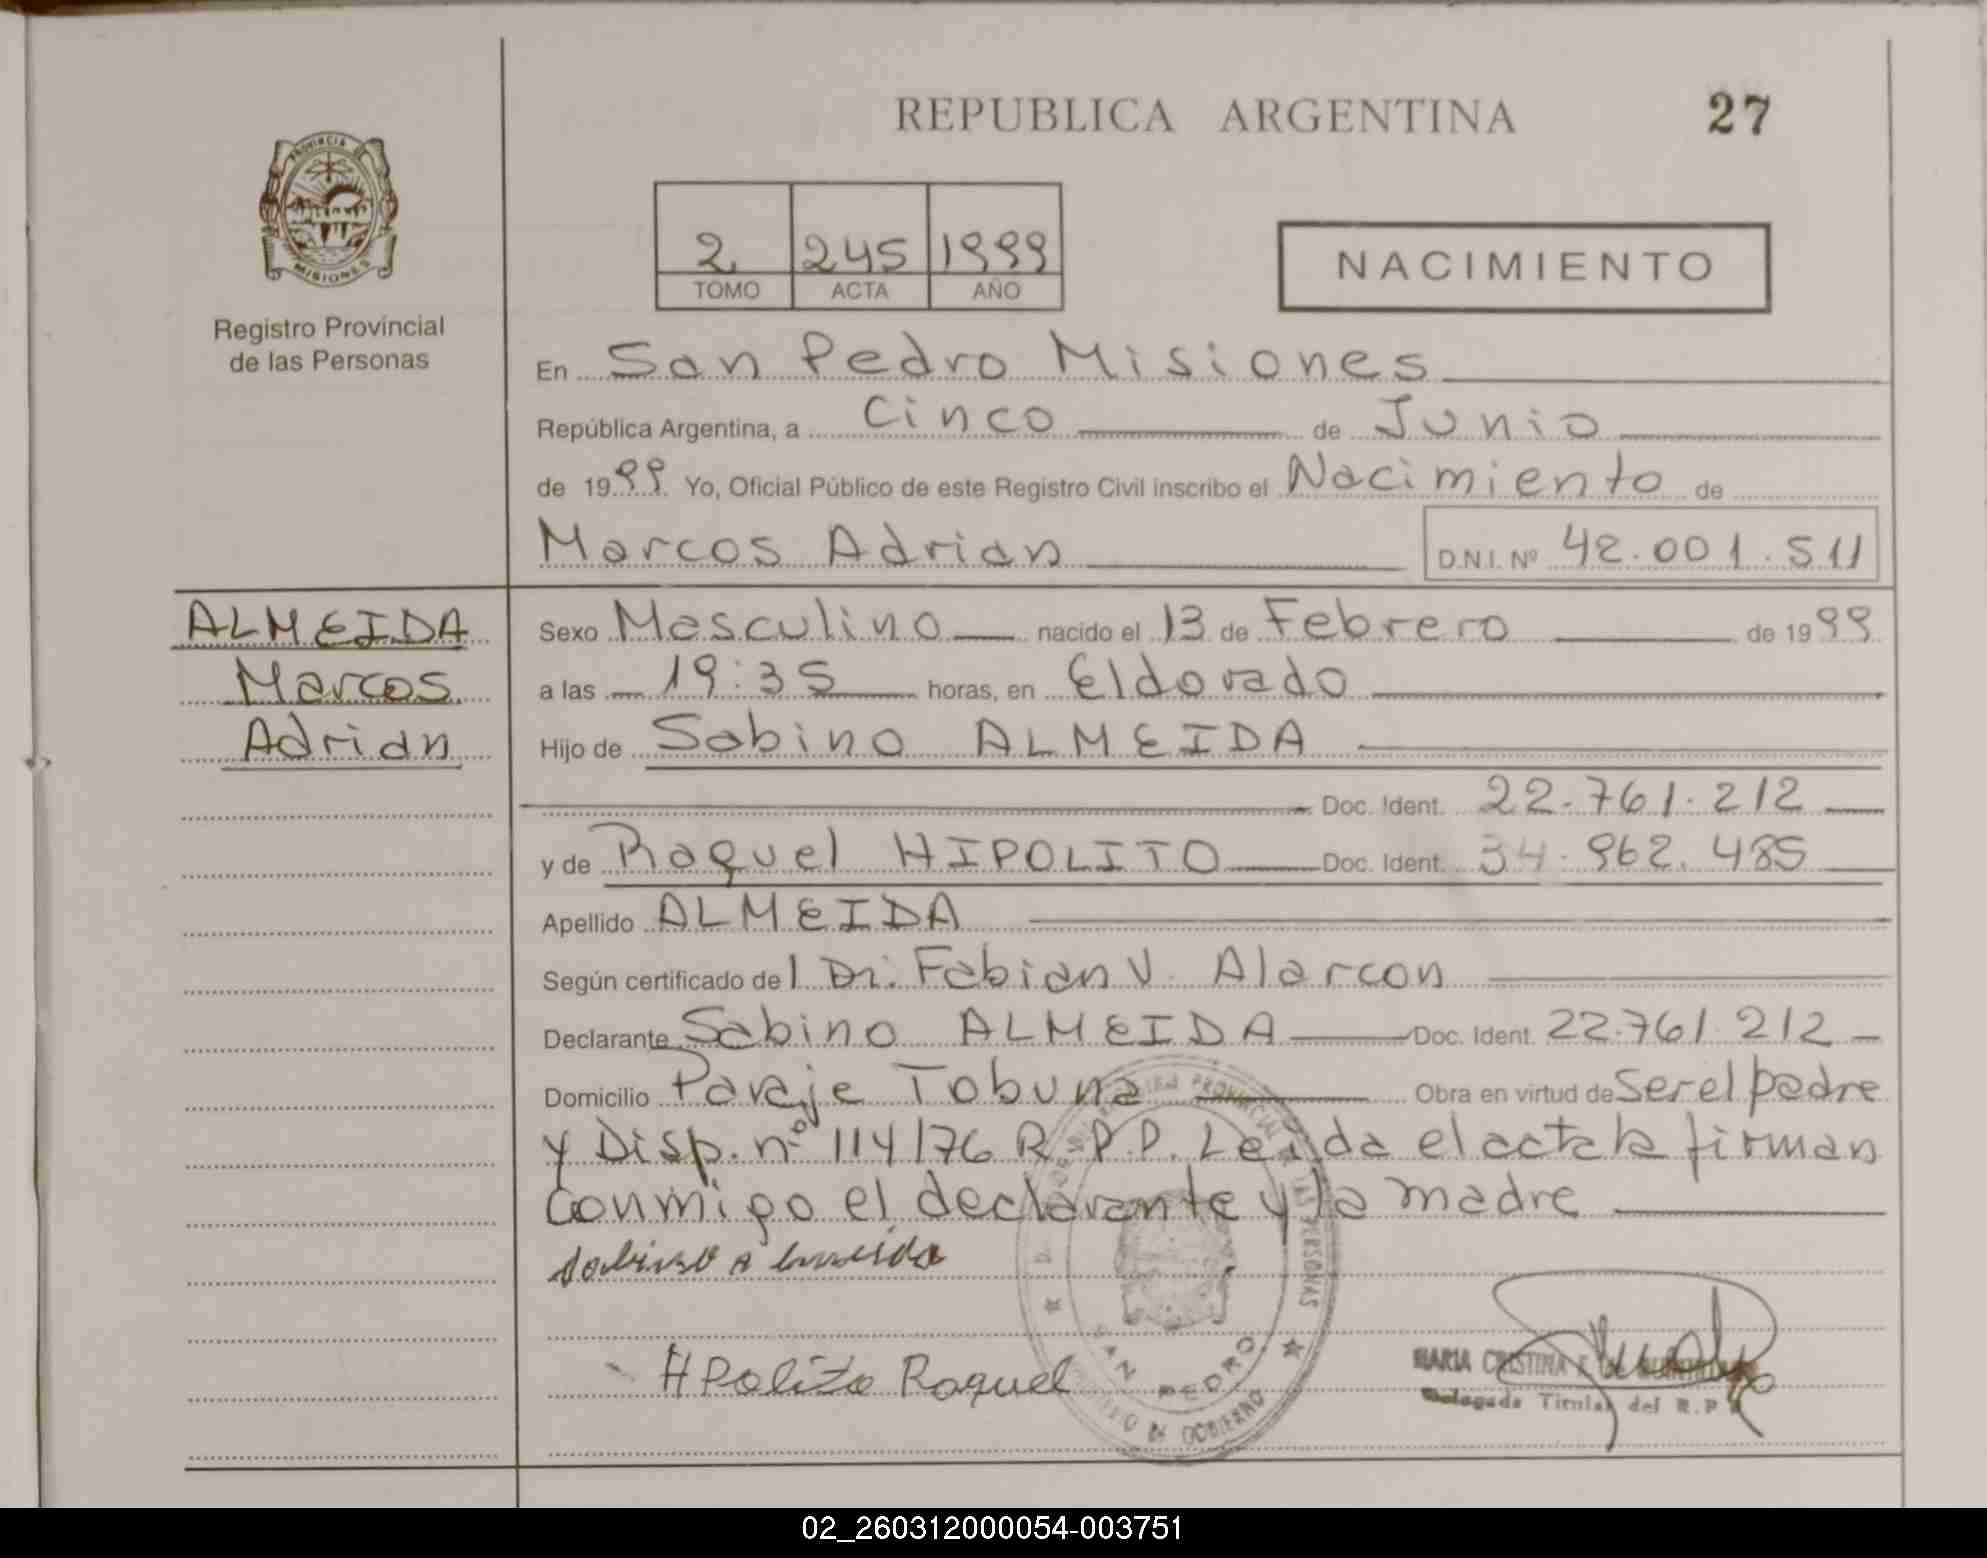 REPUBLICA ARGENTINA
27
PROVINCIA DE
MISIONES
Registro Provincial
de las Personas
2 245 1999
TOMO ACTA AÑO
NACIMIENTO
En San Pedro Misiones
República Argentina, a Cinco de Junio
de 1999. Yo, Oficial Público de este Registro Civil inscribo el Nacimiento de
Marcos Adrian D.N.I. Nº 42.001.511
ALMEIDA
Marcos
Adrian
Sexo Masculino nacido el 13 de Febrero de 1999
a las 19:35 horas, en Eldorado
Hijo de Sabino ALMEIDA
Doc. Ident. 22.761.212
y de Raquel HIPOLITO Doc. Ident. 34.962.485
Apellido ALMEIDA
Según certificado del Dr. Fabian V. Alarcon
Declarante Sabino ALMEIDA Doc. Ident. 22.761.212
Domicilio Paraje Tobuna Obra en virtud de Ser el padre
y Disp. nº 114/76 R.P.P. Leida el acta la firman
conmigo el declarante y la madre
Sabino Almeida
HPolito Raquel
PROVINCIAL DE LAS PERSONAS
SAN PEDRO
DE GOBIERNO
MARIA CRISTINA
Delegada Titular del R.P.
02_260312000054-003751